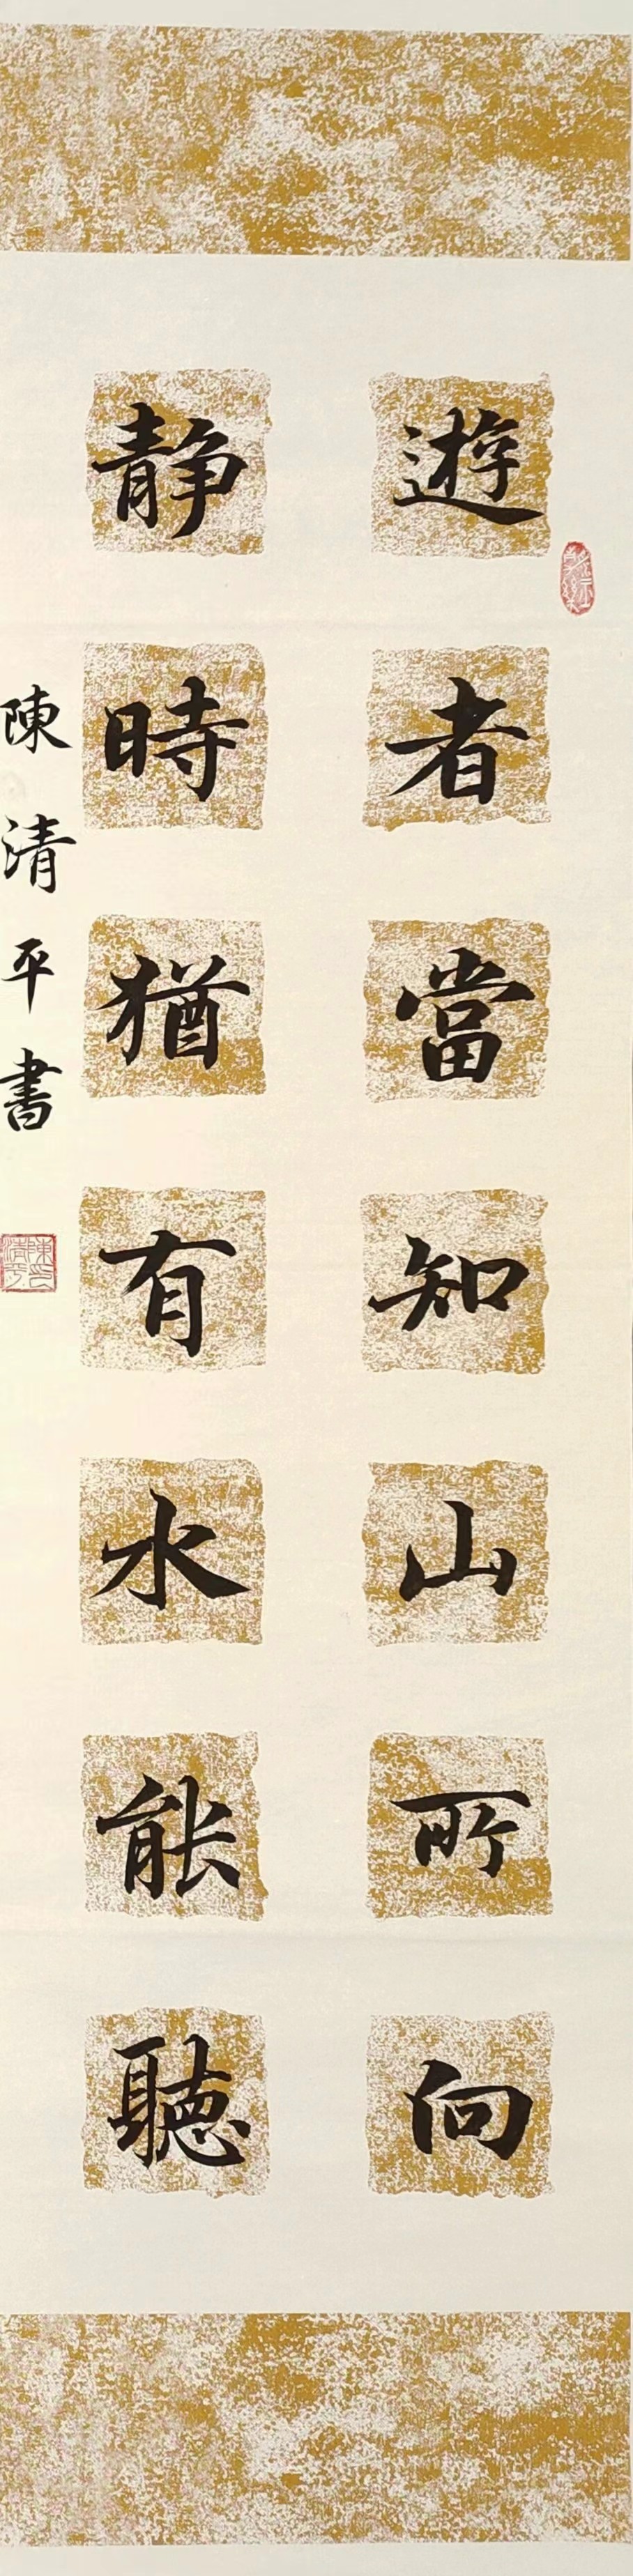 遊者當知山所向
静時猶有水能聽
陳清平書